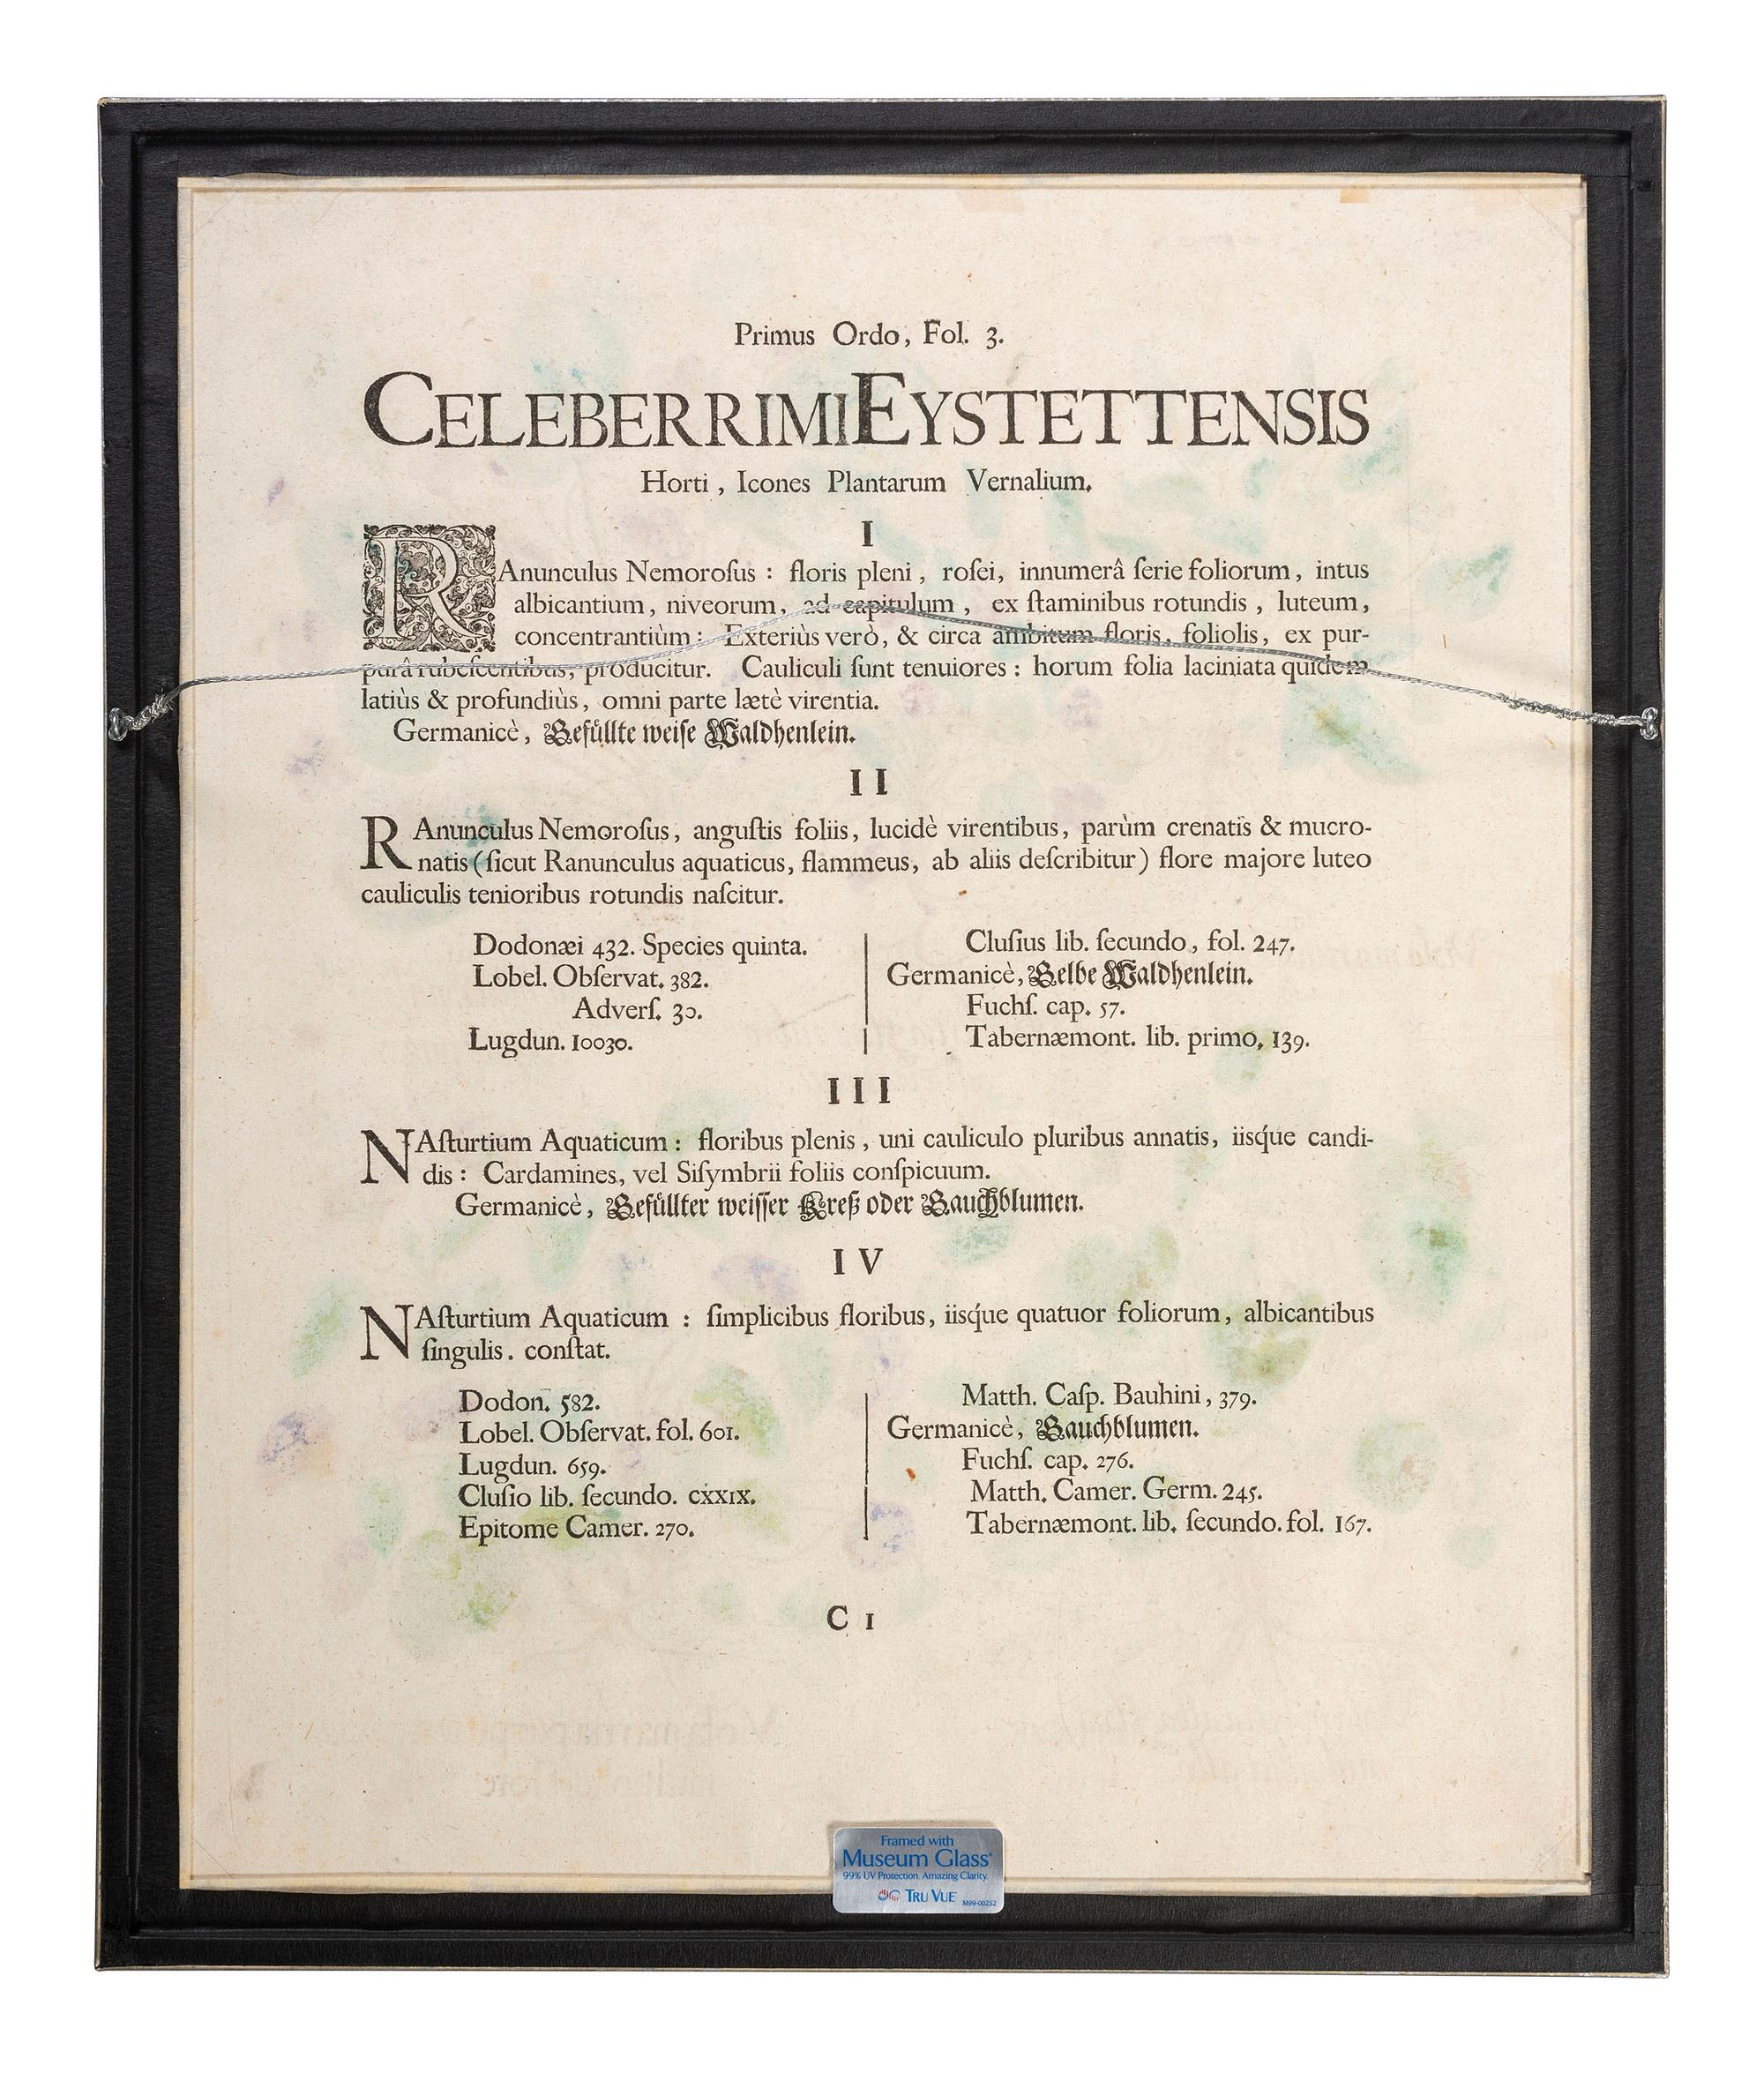 Primus Ordo, Fol. 3.
CELEBERRIMI EYSTETTENSIS
Horti, Icones Plantarum Vernalium.
I
RAnunculus Nemoroſus : floris pleni, roſei, innumerâ ſerie foliorum, intus
albicantium, niveorum, ad capitulum, ex ſtaminibus rotundis, luteum,
concentrantiùm: Exteriùs verò, & circa ambitum floris, foliolis, ex pur-
purâ rubeſcentibus, producitur. Cauliculi ſunt tenuiores : horum folia laciniata quidem
latiùs & profundiùs, omni parte lætè virentia.
Germanicè, Gefüllte weiſe Waldhenlein.
II
RAnunculus Nemoroſus, anguſtis foliis, lucidè virentibus, parùm crenatis & mucro-
natis (ſicut Ranunculus aquaticus, flammeus, ab aliis deſcribitur) flore majore luteo
cauliculis tenioribus rotundis naſcitur.
Dodonæi 432. Species quinta.
Lobel. Obſervat. 382.
Adverſ. 30.
Lugdun. 10030.
Cluſius lib. ſecundo, fol. 247.
Germanicè, Gelbe Waldhenlein.
Fuchſ. cap. 57.
Tabernæmont. lib. primo, 139.
III
NAſturtium Aquaticum : floribus plenis, uni cauliculo pluribus annatis, iisq́ue candi-
dis : Cardamines, vel Siſymbrii foliis conſpicuum.
Germanicè, Gefüllter weiſſer Kreß oder Gauchblumen.
IV
NAſturtium Aquaticum : ſimplicibus floribus, iisq́ue quatuor foliorum, albicantibus
ſingulis. conſtat.
Dodon. 582.
Lobel. Obſervat. fol. 601.
Lugdun. 659.
Cluſio lib. ſecundo. cxxix.
Epitome Camer. 270.
Matth. Caſp. Bauhini, 379.
Germanicè, Gauchblumen.
Fuchſ. cap. 276.
Matth. Camer. Germ. 245.
Tabernæmont. lib. ſecundo. fol. 167.
C 1
Framed with
Museum Glass®
99% UV Protection. Amazing Clarity.
TRU VUE
M99-00252